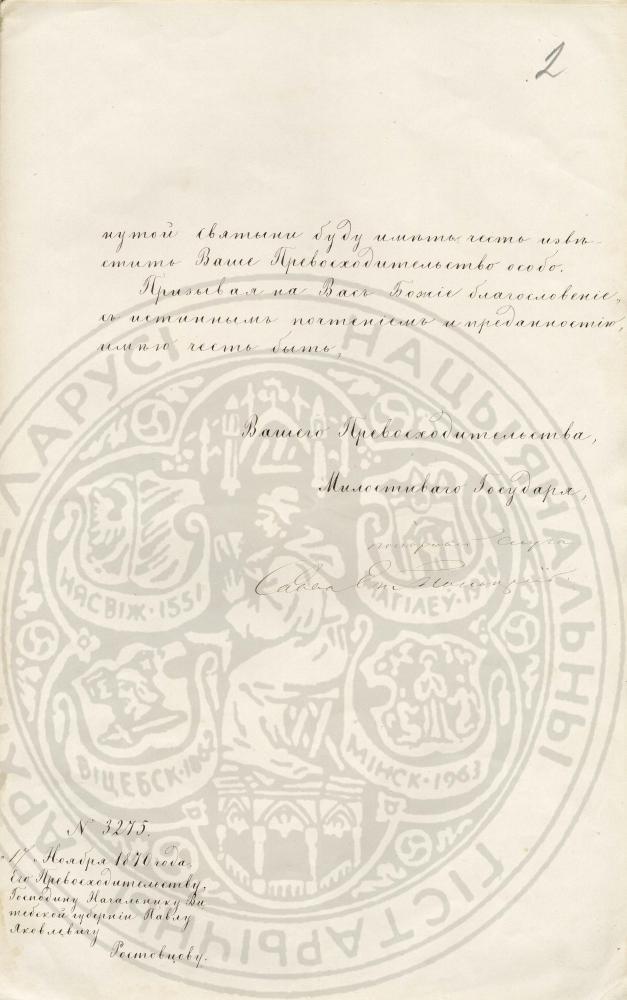 2
нутой святыни буду имѣть честь извѣ-
стить Ваше Превосходительство особо.
Призывая на Васъ Божіе благословеніе,
съ истиннымъ почтеніемъ и преданностію,
имѣю честь быть,
Вашего Превосходительства,
Милостиваго Государя,
покорный слуга
Савва Еп. Полоцкій.
N 3275.
"17" Ноября 1870 года.
Его Превосходительству,
Господину Начальнику Ви-
тебской губерніи Павлу
Яковлевичу
Ростовцову.
НЯСВІЖ·1551
МАГІЛЕЎ
ВІЦЕБСК
МІНСК·1963
НАЦЫЯНАЛЬНЫ
ГІСТАРЫЧНЫ
АРХ
ЛАРУСІ